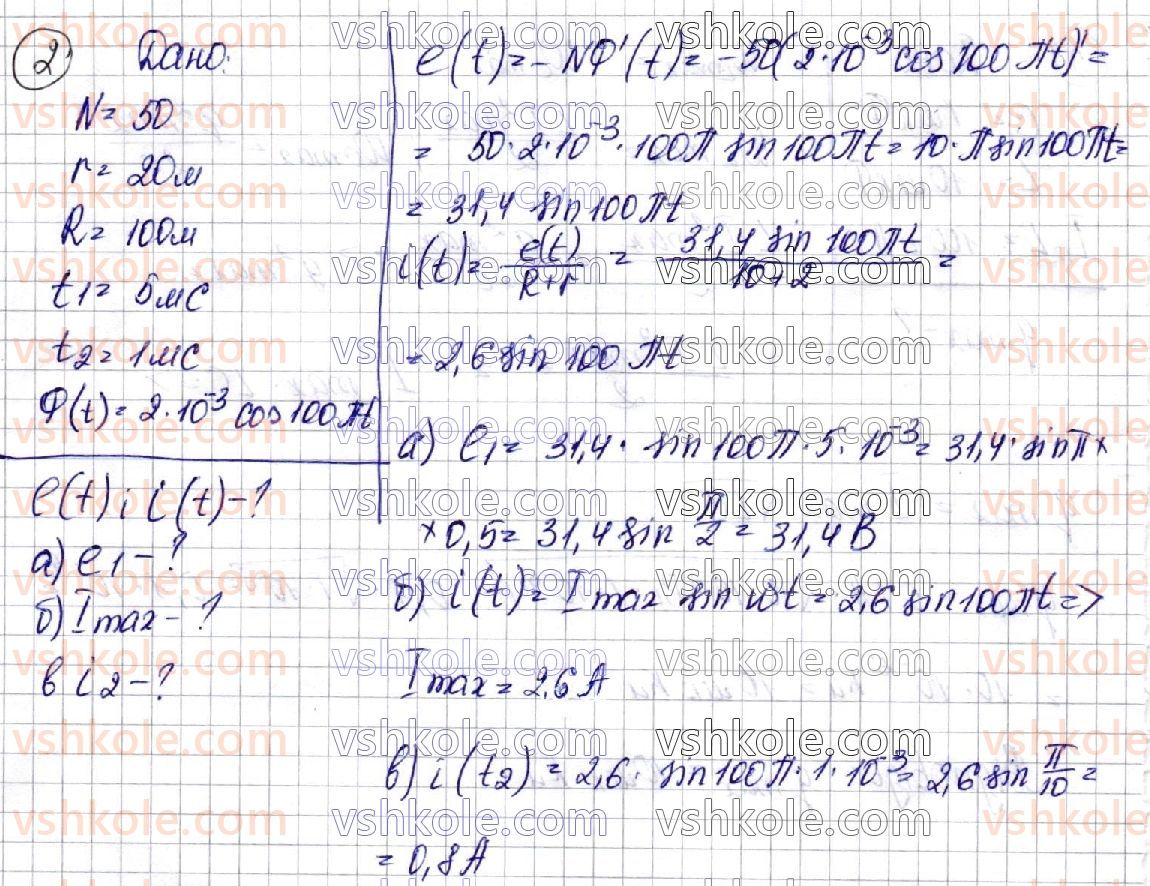 2 Дано:
N = 50
r = 2Ом
R = 10Ом
t1 = 5мс
t2 = 1мс
Ф(t) = 2·10⁻³ cos 100πt
e(t) і i(t) - ?
а) e1 - ?
б) Imax - ?
в i2 - ?
e(t) = - NФ'(t) = -50(2·10⁻³ cos 100πt)' =
= 50·2·10⁻³·100π sin 100πt = 10·π sin 100πt =
= 31,4 sin 100πt
i(t) = e(t)/R+r = 31,4 sin 100πt/10+2 =
= 2,6 sin 100πt
а) e1 = 31,4· sin 100π·5·10⁻³ = 31,4· sin π ×
× 0,5 = 31,4 sin π/2 = 31,4 В
б) i(t) = Imax sin ωt = 2,6 sin 100πt =>
Imax = 2,6 А
в) i(t2) = 2,6· sin 100π·1·10⁻³ = 2,6 sin π/10 =
= 0,8 А
vshkole.com